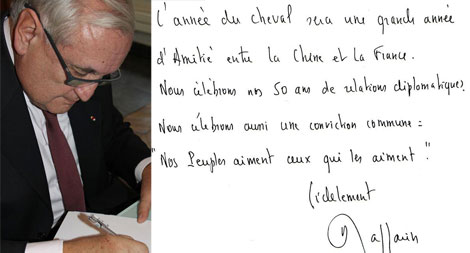 L'année du cheval sera une grande année
d'Amitié entre la Chine et la France.
Nous célébrons nos 50 ans de relations diplomatiques.
Nous célébrons aussi une conviction commune :
"Nos Peuples aiment ceux qui les aiment."
Fidèlement
Raffarin